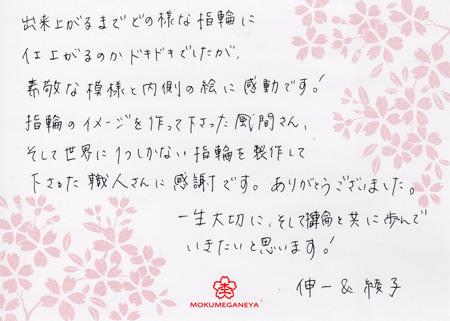 出来上がるまでどの様な指輪に
仕上がるのかドキドキでしたが、
素敬な模様と内側の絵に感動です!
指輪のイメージを作って下さった風間さん、
そして世界に1つしかない指輪を製作して
下さった職人さんに感謝です。ありがとうございました。
一生大切に、そして指輪と共に歩んで
いきたいと思います!
伸一 & 綾子
MOKUMEGANEYA